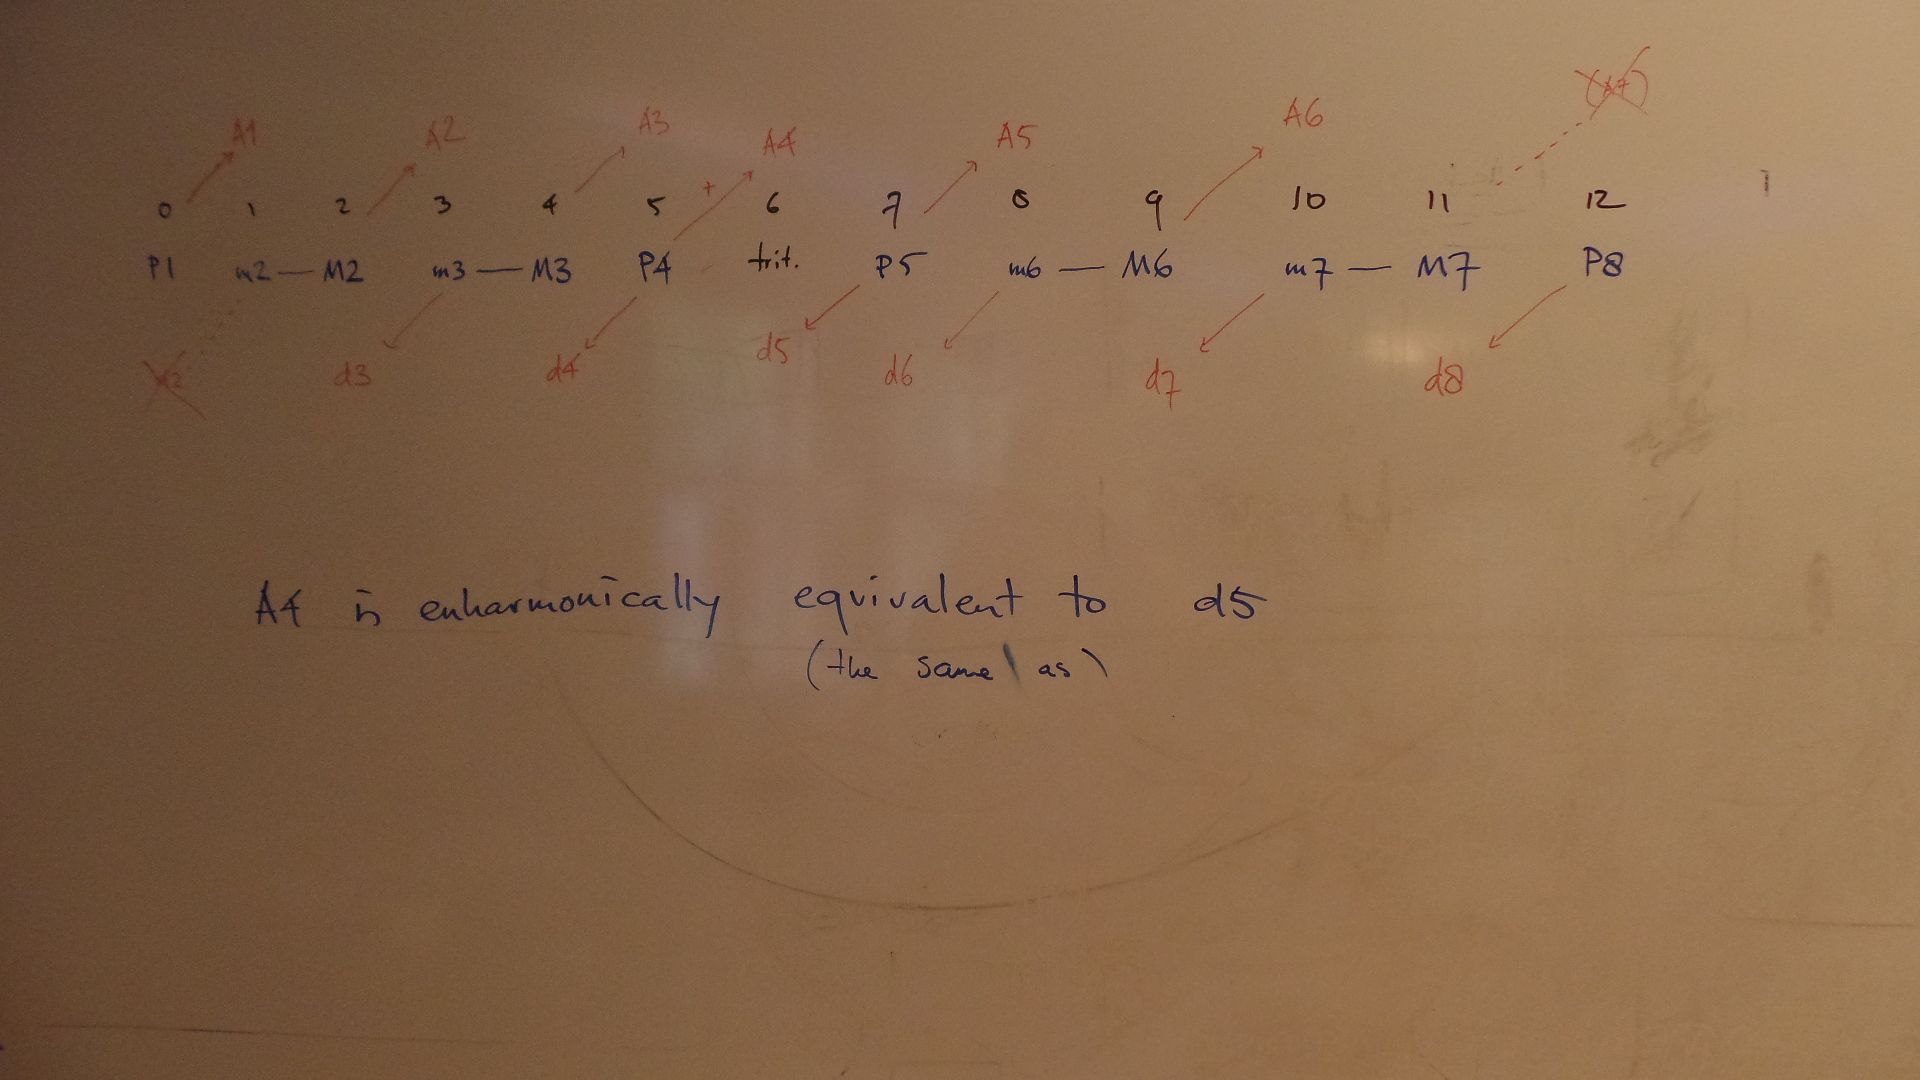 (A7)
A1 A2 A3 A4 A5 A6
+
0 1 2 3 4 5 6 7 8 9 10 11 12
P1 m2 — M2 m3 — M3 P4 trit. P5 m6 — M6 m7 — M7 P8
d3 d4 d5 d6 d7 d8
A4 is enharmonically equivalent to d5
(the same as)